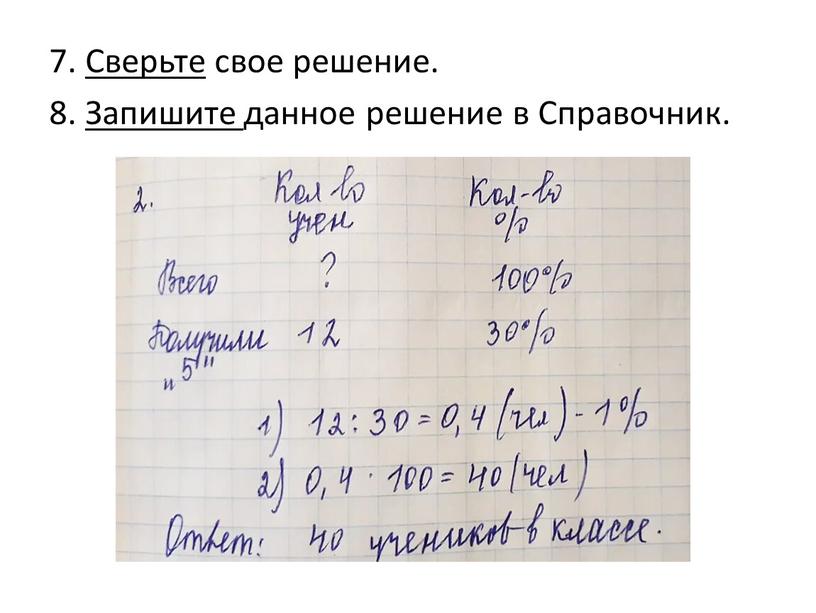 7. Сверьте свое решение.
8. Запишите данное решение в Справочник.
2. Кол во Кол-во
учен %
Всего ? 100%
Получили 12 30%
„5"
1) 12 : 30 = 0,4 (чел) - 1%
2) 0,4 · 100 = 40 (чел)
Ответ: 40 учеников в классе.